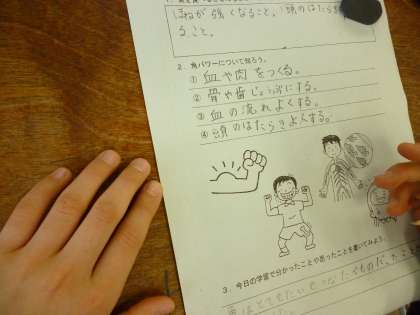 ほねが強くなること。頭のはたらき
ること。
2. 魚パワーについて知ろう。
① 血や肉をつくる。
② 骨や歯じょうぶにする。
③ 血の流れよくする。
④ 頭のはたらきよくする。
3. 今日の学習で分かったことや思ったことを書いてみよう。